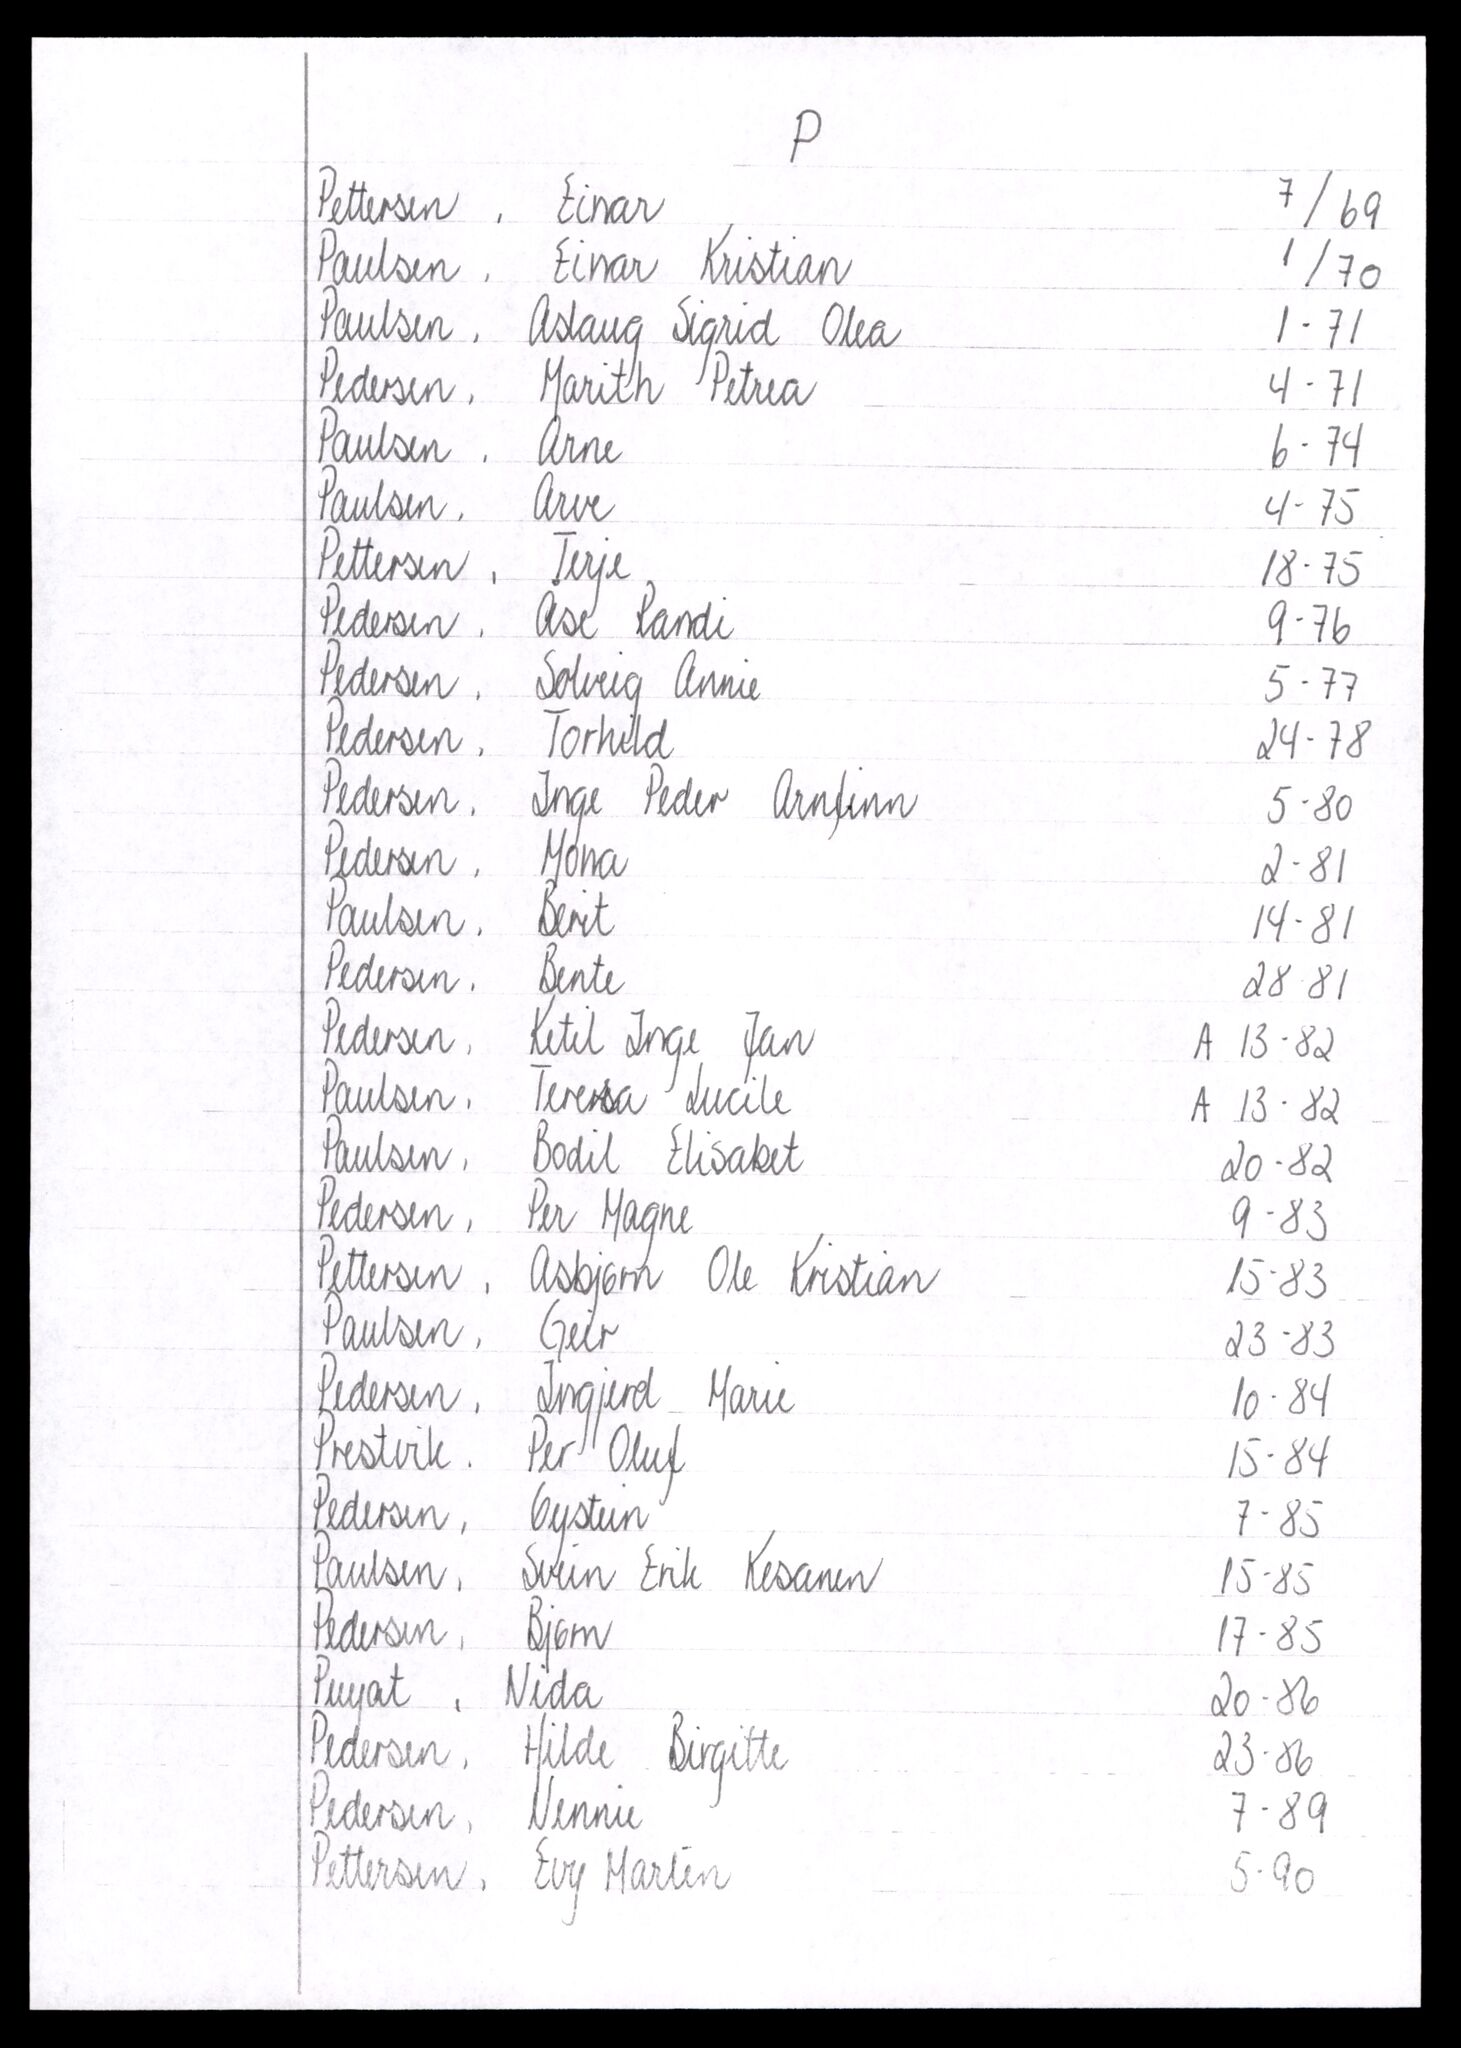 P
Pettersen, Einar 7/69
Paulsen, Einar Kristian 1/70
Paulsen, Aslaug Sigrid Olea 1-71
Pedersen, Marith Petrea 4-71
Paulsen, Arne 6-74
Paulsen, Arve 4-75
Pettersen, Terje 18-75
Pedersen, Åse Randi 9-76
Pedersen, Solveig Annie 5-77
Pedersen, Torhild 24-78
Pedersen, Inge Peder Arnfinn 5-80
Pedersen, Mona 2-81
Paulsen, Berit 14-81
Pedersen, Bente 28-81
Pedersen, Ketil Inge Jan A 13-82
Paulsen, Teresa Lucile A 13-82
Paulsen, Bodil Elisabet 20-82
Pedersen, Per Magne 9-83
Pettersen, Asbjørn Ole Kristian 15-83
Paulsen, Geir 23-83
Pedersen, Ingjerd Marie 10-84
Prestvik. Per Oluf 15-84
Pedersen, Øystein 7-85
Paulsen, Svein Erik Kesanen 15-85
Pedersen, Bjørn 17-85
Puyat, Nida 20-86
Pedersen, Hilde Birgitte 23-86
Pedersen, Nennie 7-89
Pettersen, Evy Marlèn 5-90